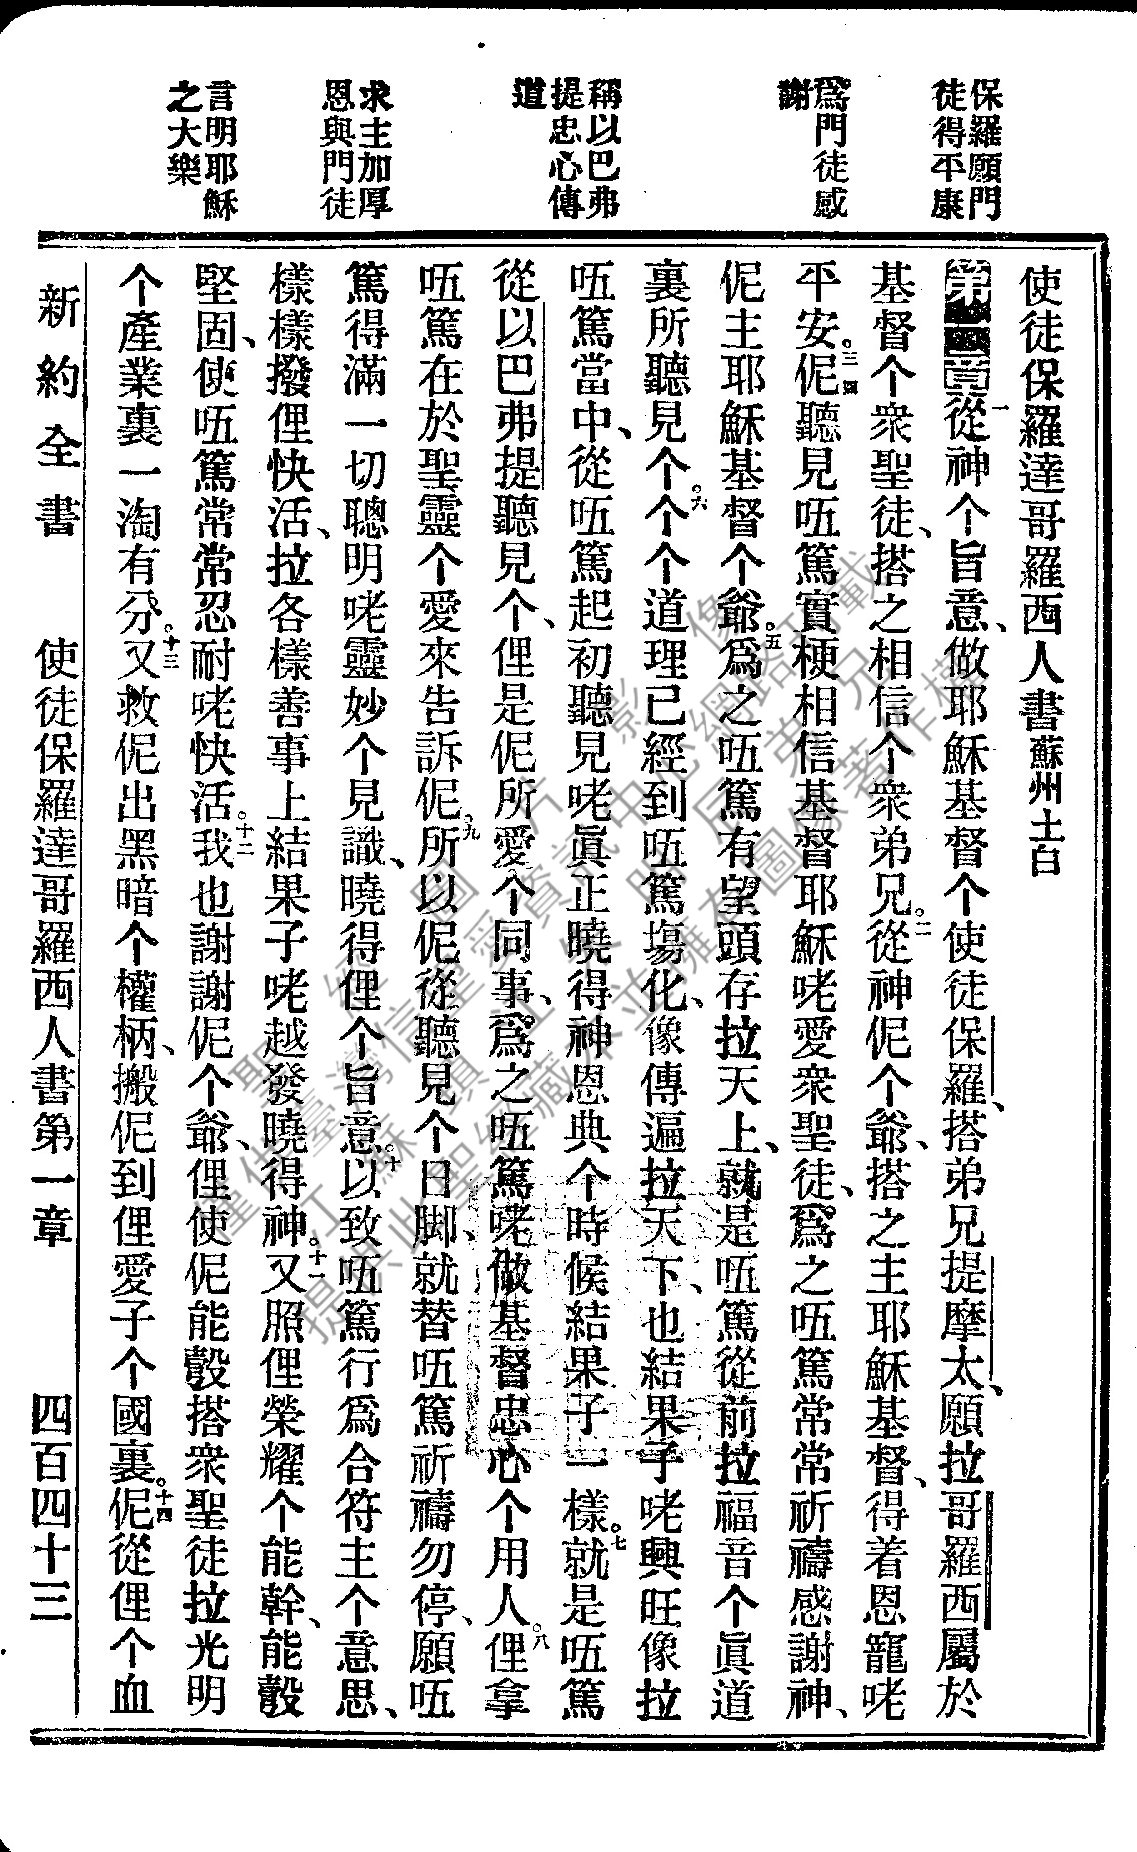 保羅願門
徒得平康
爲門徒感
謝
稱以巴弗
提忠心傳
道
求主加厚
恩與門徒
言明耶穌
之大樂
使徒保羅達哥羅西人書蘇州土白
第一章一從神个旨意、做耶穌基督个使徒保羅、搭弟兄提摩太、願拉哥羅西屬於
基督个衆聖徒、搭之相信个衆弟兄。二從神伲个爺、搭之主耶穌基督、得着恩寵咾
平安。三伲聽見唔篤實梗相信基督耶穌咾愛衆聖徒、爲之唔篤常常祈禱感謝神、
伲主耶穌基督个爺。五爲之唔篤有望頭存拉天上、就是唔篤從前拉福音个眞道
裏所聽見个。六个个道理已經到唔篤塲化、像傳遍拉天下、也結果子咾興旺像拉
唔篤當中、從唔篤起初聽見咾眞正曉得神恩典个時候結果子一樣。七就是唔篤
從以巴弗提聽見个、俚是伲所愛个同事、爲之唔篤咾做基督忠心个用人。八俚拿
唔篤在於聖靈个愛來告訴伲。九所以伲從聽見个日脚、就替唔篤祈禱勿停、願唔
篤得滿一切聰明咾靈妙个見識、曉得俚个旨意。十以致唔篤行爲合符主个意思、
樣樣撥俚快活、拉各樣善事上結果子咾越發曉得神。十一又照俚榮耀个能幹、能彀
堅固、使唔篤常常忍耐咾快活。十二我也謝謝伲个爺、俚使伲能彀搭衆聖徒拉光明
个產業裏一淘有分。十三又救伲出黑暗个權柄、搬伲到俚愛子个國裏。十四伲從俚个血
新約全書 使徒保羅達哥羅西人書第一章 四百四十三
聖經圖片影像
僅供臺灣信望愛資訊中心網路下載
江蘇 鎮江 牧明辰 弟兄
提供此聖經藏本並擁有圖像著作權